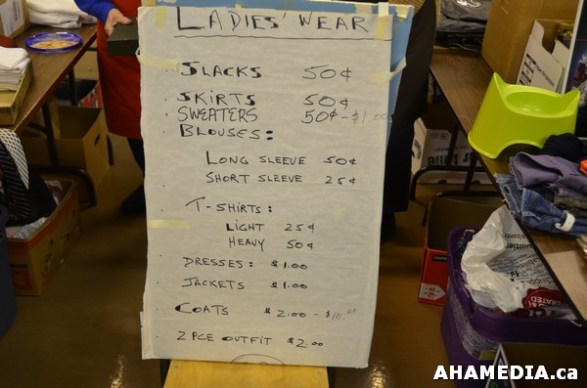 LADIES' WEAR
SLACKS 50¢
SKIRTS 50¢
SWEATERS 50¢-$1.00
BLOUSES:
LONG SLEEVE 50¢
SHORT SLEEVE 25¢
T-SHIRTS:
LIGHT 25¢
HEAVY 50¢
DRESSES: $1.00
JACKETS $1.00
COATS $2.00 - $10.00
2 PCE OUTFIT $2.00
AHAMEDIA.ca